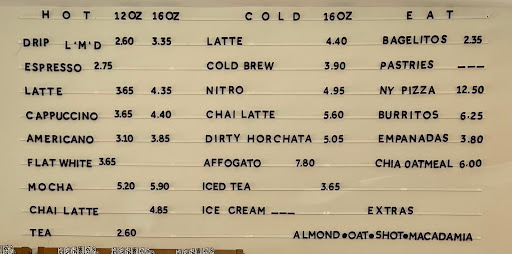 HOT 12OZ 16OZ COLD 16OZ EAT
DRIP L'M'D 2.60 3.35 LATTE 4.40 BAGELITOS 2.35
ESPRESSO 2.75 COLD BREW 3.90 PASTRIES ___
LATTE 3.65 4.35 NITRO 4.95 NY PIZZA 12.50
CAPPUCCINO 3.65 4.40 CHAI LATTE 5.60 BURRITOS 6.25
AMERICANO 3.10 3.85 DIRTY HORCHATA 5.05 EMPANADAS 3.80
FLAT WHITE 3.65 AFFOGATO 7.80 CHIA OATMEAL 6.00
MOCHA 5.20 5.90 ICED TEA 3.65
CHAI LATTE 4.85 ICE CREAM ___ EXTRAS
TEA 2.60 ALMOND•OAT•SHOT•MACADAMIA